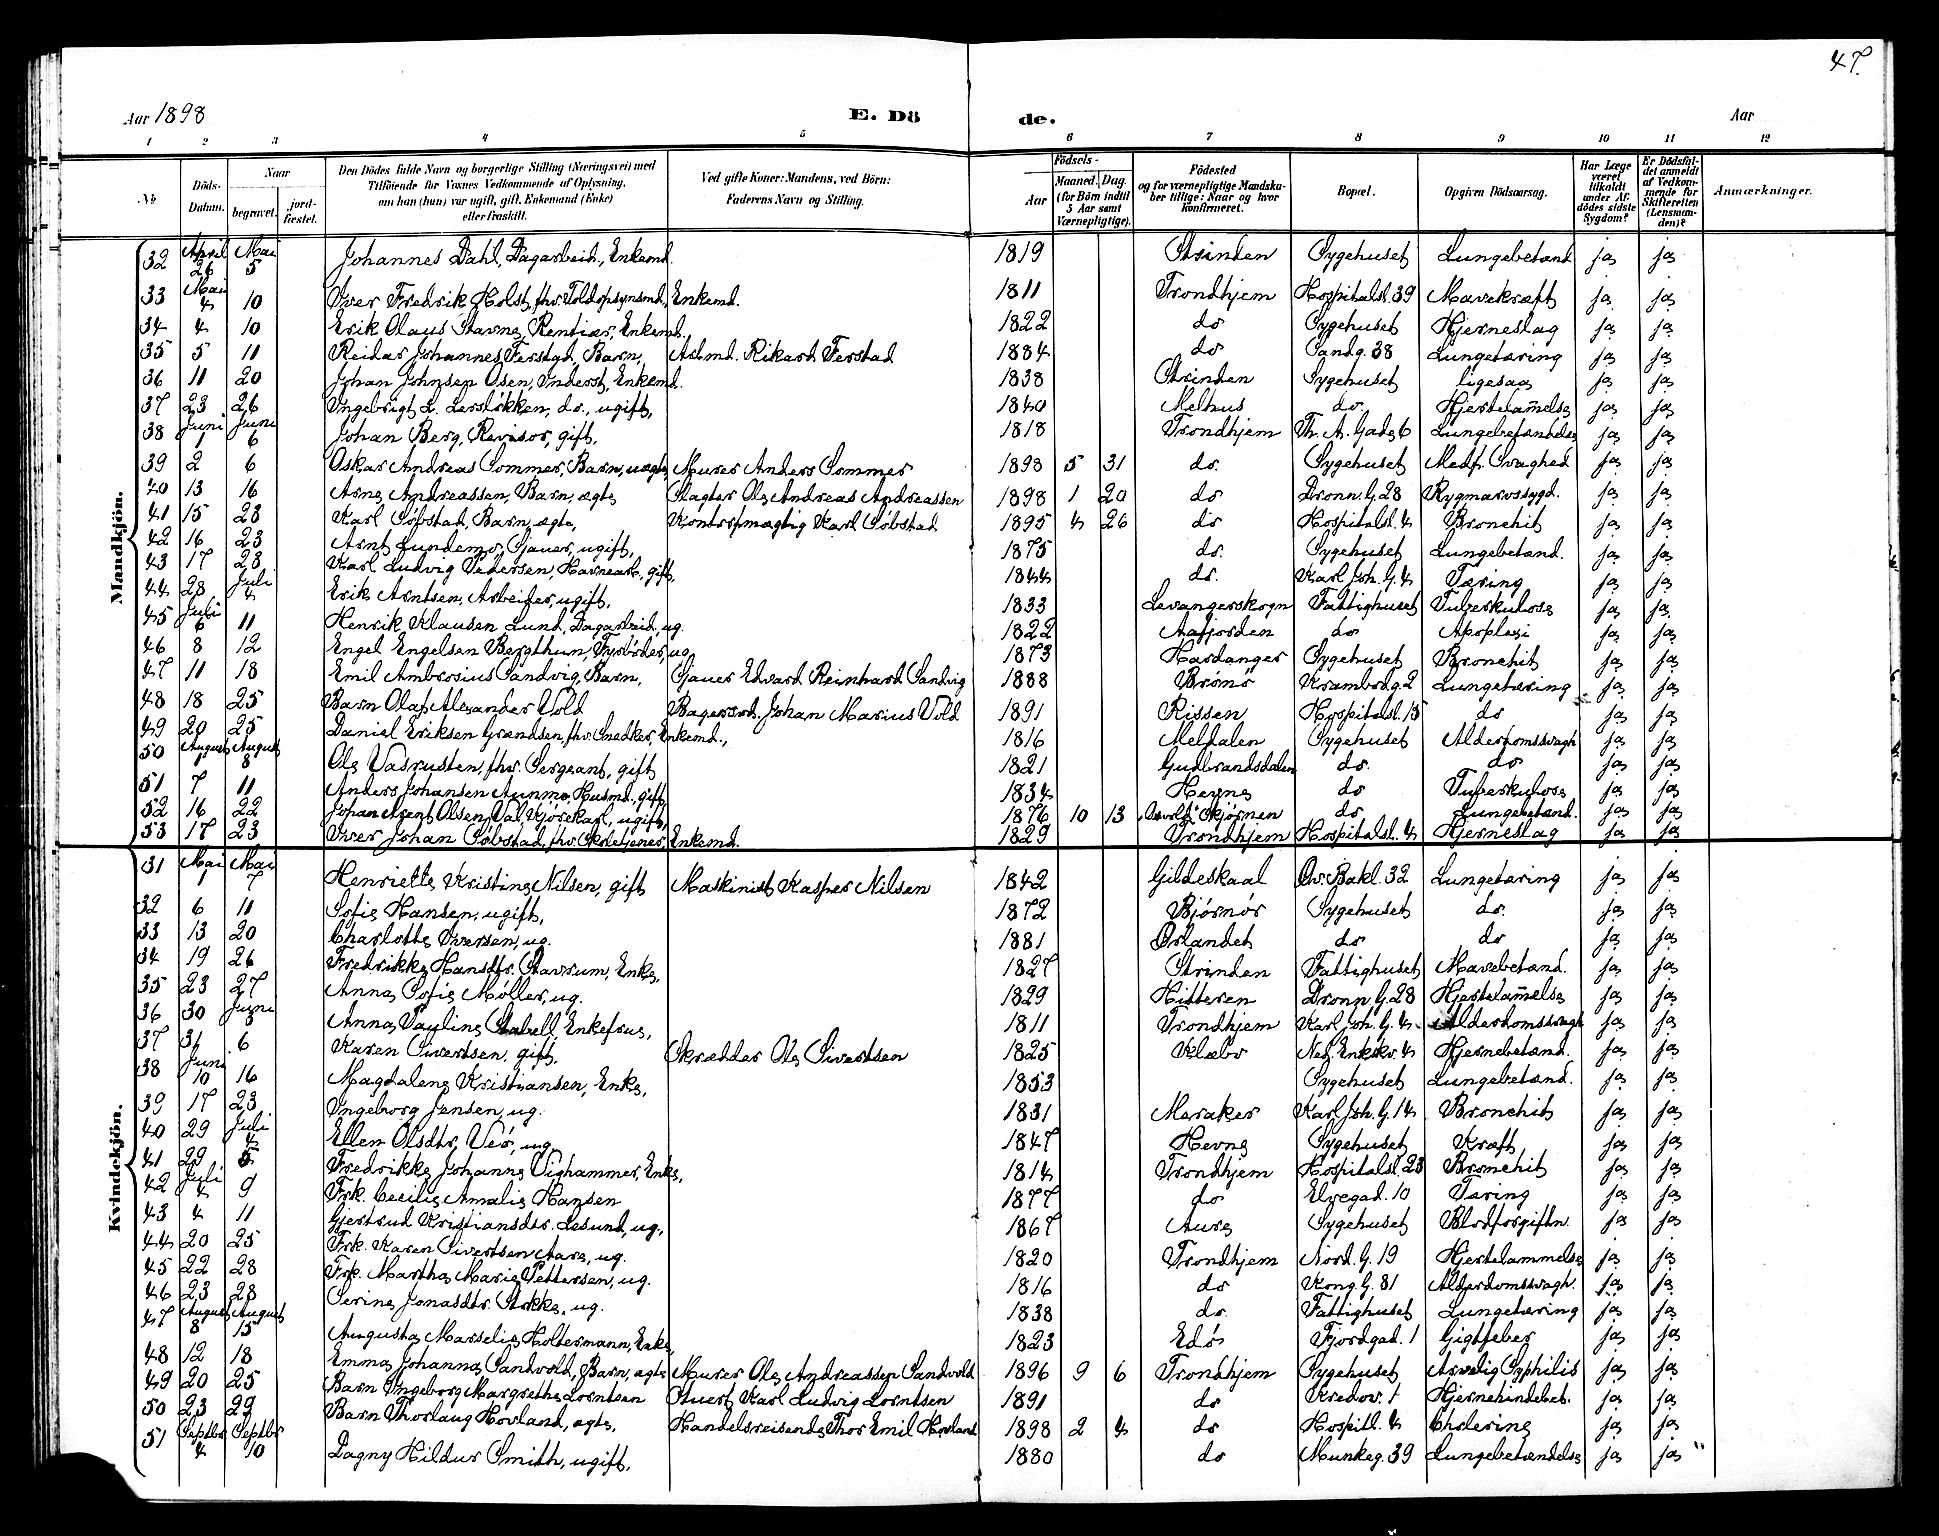 47.
Aar 1898 E. Dö de. Aar
1 2 3 4 5 6 7 8 9 10 11 12
No Döds-Datum. Naar begravet. jordfæstet. Den Dödes fulde Navn og borgerlige Stilling (Næringsvei) med Tilföiende för Voxnes Vedkommende af Oplysning, om han (hun) var ugift, gift, Enkemand (Enke) eller fraskilt. Ved gifte Koner: Mandens, ved Börn: Faderens Navn og Stilling. Födsels- Aar Maaned. Dag. (for Börn indtil 5 Aar samt Værnepligtige). Födested og for værnepligtige Mandskaber tillige: Naar og hvor konfirmeret. Bopæl. Opgiven Dödsaarsag. Har Læge været tilkaldt under Afdödes sidste Sygdom? Er Dödsfaldet anmeldt af Vedkommende for Skifteretten (Lensmanden)? Anmærkninger.
Mandkjön.
32 April 26 Mai 5 Johannes Dahl, Dagarbeid., Enkemd. 1819 Strinden Sygehuset Lungebetænd ja ja
33 Mai 4 10 Iver Fredrik Holst, fhv. Toldopsynsmd, Enkemd. 1811 Trondhjem Hospitalsl. 39 Mavekræft ja ja
34 4 10 Erik Olaus Stavne, Rentiær, Enkemd. 1822 do Sygehuset Hjerneslag ja ja
35 5 11 Reidar Johannes Ferstad, Barn, Astmd. Rikard Ferstad 1884 do Sandg. 38 Lungetæring ja ja
36 11 20 Johan Johnsen Osen, Inderst, Enkemd. 1838 Strinden Sygehuset ligesaa ja ja
37 23 26 Ingebrigt L. Lersløkken, do., ugift, 1840 Melhus do. Hjertelam̅else ja ja
38 Juni 1 Juni 6 Johan Berg, Revisor, gift, 1818 Trondhjem Th. A. Gade 6 Lungebetændelse ja ja
39 2 6 Oskar Andreas Sommer, Barn, uægte, Murer Anders Sommer 1898 5 31 do. Sygehuset Medf. Svaghed ja ja
40 13 16 Arne Andreassen, Barn, ægte Slagter Ole Andreas Andreassen 1898 1 20 do Dronn. G. 28 Rygmarvssygd. ja ja
41 15 23 Karl Søbstad, Barn, ægte, Kontorfmægtig Karl Søbstad 1895 4 26 do Hospitalsl. 4 Bronchit ja ja
42 16 23 Arnt Lundemo, Sjauer, ugift, 1875 do. Sygehuset Lungebetænd. ja ja
43 17 28 Karl Ludvig Pedersen, Havnearb., gift, 1844 do. Karl Joh. G. 4 Tæring ja ja
44 28 Juli 4 Erik Arntsen, Arbeider, ugift, 1833 Levangerskogn Fattighuset Tuberkulose ja ja
45 Juli 6 11 Henrik Klausen Lund, Dagarbeid, ug. 1822 Aafjorden do Apoplexi ja ja
46 8 12 Engel Engelsen Bergthun, Fyrbøder, ug 1873 Hardanger Sygehuset Bronchit ja ja
47 11 18 Emil Ambrosius Sandvig, Barn, Sjauer Edvard Reinhard Sandvig 1888 Brønø Krambodg. 2 Lungetæring ja ja
48 18 25 Barn Olaf Alexander Vold Bagersvd. Johan Marius Vold 1891 Rissen Hospitalsl. 15 do ja ja
49 20 25 Daniel Eriksen Grændsen, fhv. Snedker, Enkemd., 1816 Meldalen Sygehuset Alderdomssvagh ja ja
50 August 1 August 8 Ole Vasrusten, fhv. Sergeant, gift 1821 Gudbrandsdalen do. do ja ja
51 7 11 Anders Johansen Aunmo, Husmd., gift, 1834 Hevne do Tuberkulose ja ja
52 16 22 Johan Arent Olsen Val, Kjørekarl, ugift, 1876 10 13 Skjørnen do Lungebetænd. ja ja
53 17 23 Iver Johan Søbstad, fhv. Skoletjener, Enkemd. 1829 Trondhjem Hospitalsl. 4 Hjerneslag ja ja
Kvindekjön.
31 Mai 1 Mai 7 Henriette Kristine Nilsen, gift Maskinist Kasper Nilsen 1842 Gildeskaal Øv. Bakl. 32 Lungetæring ja ja
32 6 11 Sofie Hansen, ugift, 1872 Bjørnør Sygehuset do. ja ja
33 13 20 Charlotte Iversen, ug. 1881 Ørlandet do do ja ja
34 19 26 Fredrikke Hansdtr. Stavrum, Enke, 1827 Strinden Fattighuset Mavebetænd. ja ja
35 23 27 Anna Sofie Møller, ug. 1829 Hitteren Dronn. G. 28 Hjertelam̅else ja ja
36 30 Juni 3 Anna Pauline Stabell, Enkefrue, 1811 Trondhjem Karl Joh. G. 4 Alderdomssvagh ja ja
37 31 6 Karen Sivertsen, gift, Skrædder Ole Sivertsen 1825 Klæbo Ned. Enkskv. 4 Hjernebetænd. ja ja
38 Juni 10 16 Magdalene Kristiansen, Enke, 1853 Sygehuset Lungebetænd. ja ja
39 17 23 Ingeborg Jensen, ug. 1831 Meraker Karl Joh. G. 14 Bronchit ja ja
40 29 Juli 4 Ellen Olsdtr. Veø, ug. 1847 Hevne Sygehuset Kræft ja ja
41 29 5 Fredrikke Johanne Vighammer, Enke, 1814 Trondhjem Hospitalsl. 23 Bronchit ja ja
42 Juli 4 9 Frk. Cecilie Amalie Hansen 1877 do Elvegad. 10 Tæring ja ja
43 4 11 Gjertrud Kristiansdtr. Lesund, ug. 1867 Aure Sygehuset Blodforgiftn. ja ja
44 20 25 Frk. Karen Sivertsen Aare, ug. 1820 Trondhjem Nord. G. 19 Hjertelammelse ja ja
45 22 28 Frk. Martha Marie Pettersen, ug. 1816 do Kong. G. 81 Alderdomssvagh. ja ja
46 23 28 Serine Jonasdtr. Stokke, ug. 1838 do. Fattighuset Lungetæring ja ja
47 August 8 August 15 Augusta Marselie Holtermann, Enke, 1823 Edø Fjordgad. 1 Gigtfeber ja ja
48 12 18 Emma Johanna Sandvold, Barn, ægte Murer Ole Andreassen Sandvold 1896 9 6 Trondhjem Sygehuset Arvelig Syphilis ja ja
49 20 25 Barn Ingeborg Margrethe Lorntsen Stuert Karl Ludvig Lorntsen 1891 do Kredsv. 1 Hjernehindebet. ja ja
50 23 29 Barn Thorlaug Hovland, ægte, Handelsreisende Thor Emil Hovland 1898 2 4 do Hospitl. 4 Cholerine ja ja
51 Septbr 4 Septbr 10 Dagny Hildur Smith, ugift, 1880 do Munkeg. 39 Lungebetændelse ja ja "